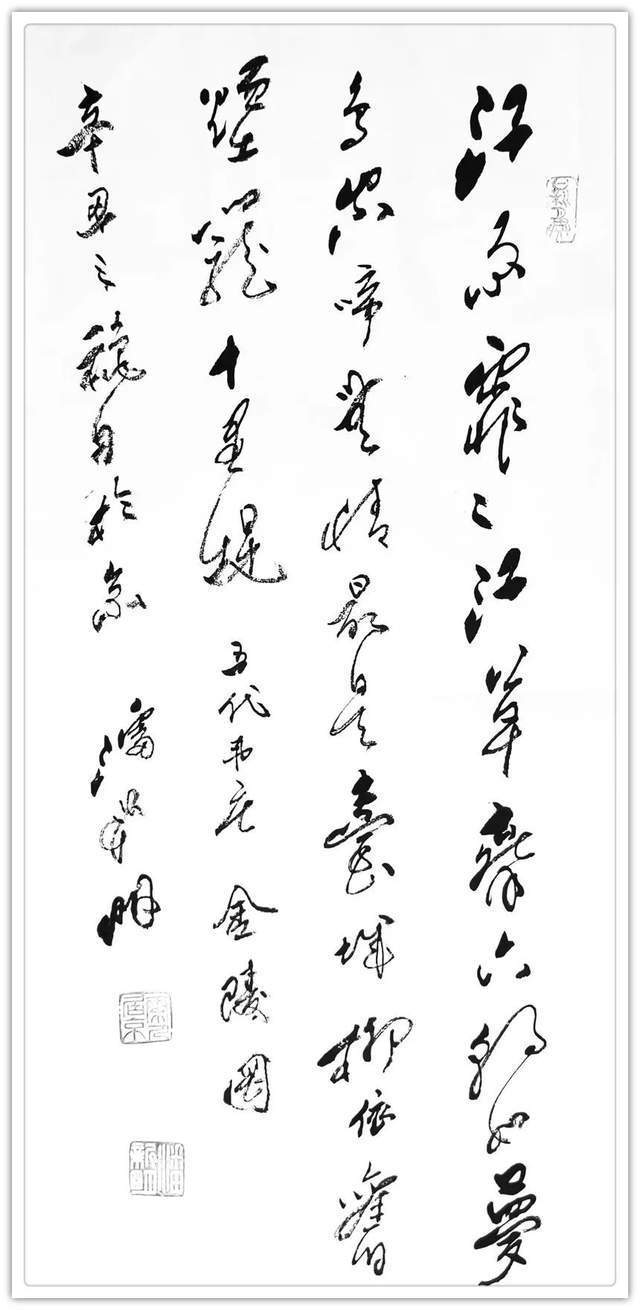 江雨霏〻江草齊六朝如夢
鳥空啼無情最是臺城柳依舊
煙籠十里堤 五代韦庄 金陵圖
辛丑之穐月於京 明